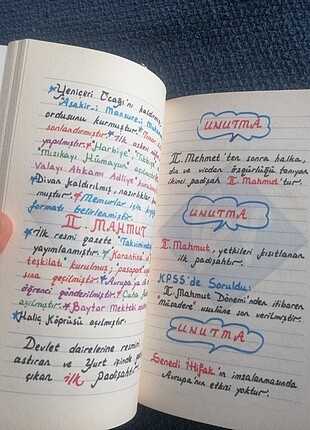 *Yeniçeri Ocağı'nı kaldırmış
Asakir-i Mansure-i
ordusunu kurmuştur. *Tımar
sonlandırmıştır. *İlk askeri
yapılmıştır. *"Harbiye",
"Mızıkayı Hümayun"
Valayı Ahkamı Adliye"
*Divan kaldırılmış, nazırlıklar
muştur. *Memurlar için
format belirlenmiştir.
II. MAHMUT
*İlk resmi gazete Takvim
yayımlanmıştır. *Karantina
teşkilatı kurulmuş; pasaport
sına geçilmiştir. *Avrupa'ya
öğrenci gönderilmiştir.
açılmıştır. *Baytar Mektebi
*Haliç Köprüsü açılmıştır.
Devlet dairelerine resmini
astıran ve Yurt içinde
çıkan ilk padişahtır.
UNUTMA
II. Mehmet'ten sonra halka,
da ve vicdan özgürlüğü tanıyan
ikinci padişah II. Mahmut'tur.
UNUTMA
II. Mahmut, yetkileri kısıtlanan
ilk padişahtır.
KPSS'de Soruldu:
II. Mahmut Dönemi'nden itibaren
"müsadere" usulüne son verilmiştir.
UNUTMA
Senedi İttifak'ın imzalanmasında
Avrupa'nın etkisi yoktur.